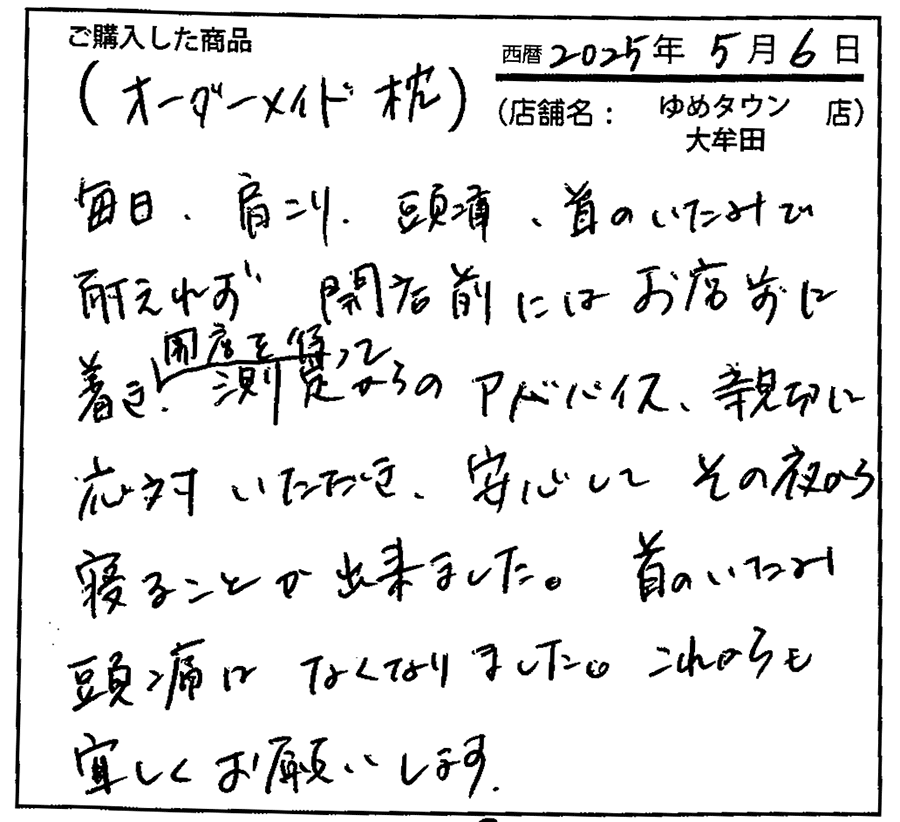 ご購入した商品
(オーダーメイド枕)
西暦 2025年 5月 6日
(店舗名: ゆめタウン 大牟田 店)
毎日、肩こり、頭痛、首のいたみで
耐えれず 開店前にはお店前に
着き、開店を待って測定からのアドバイス、親切に
応対いただき、安心してその夜から
寝ることが出来ました。首のいたみ
頭痛はなくなりました。これからも
宜しくお願いします。